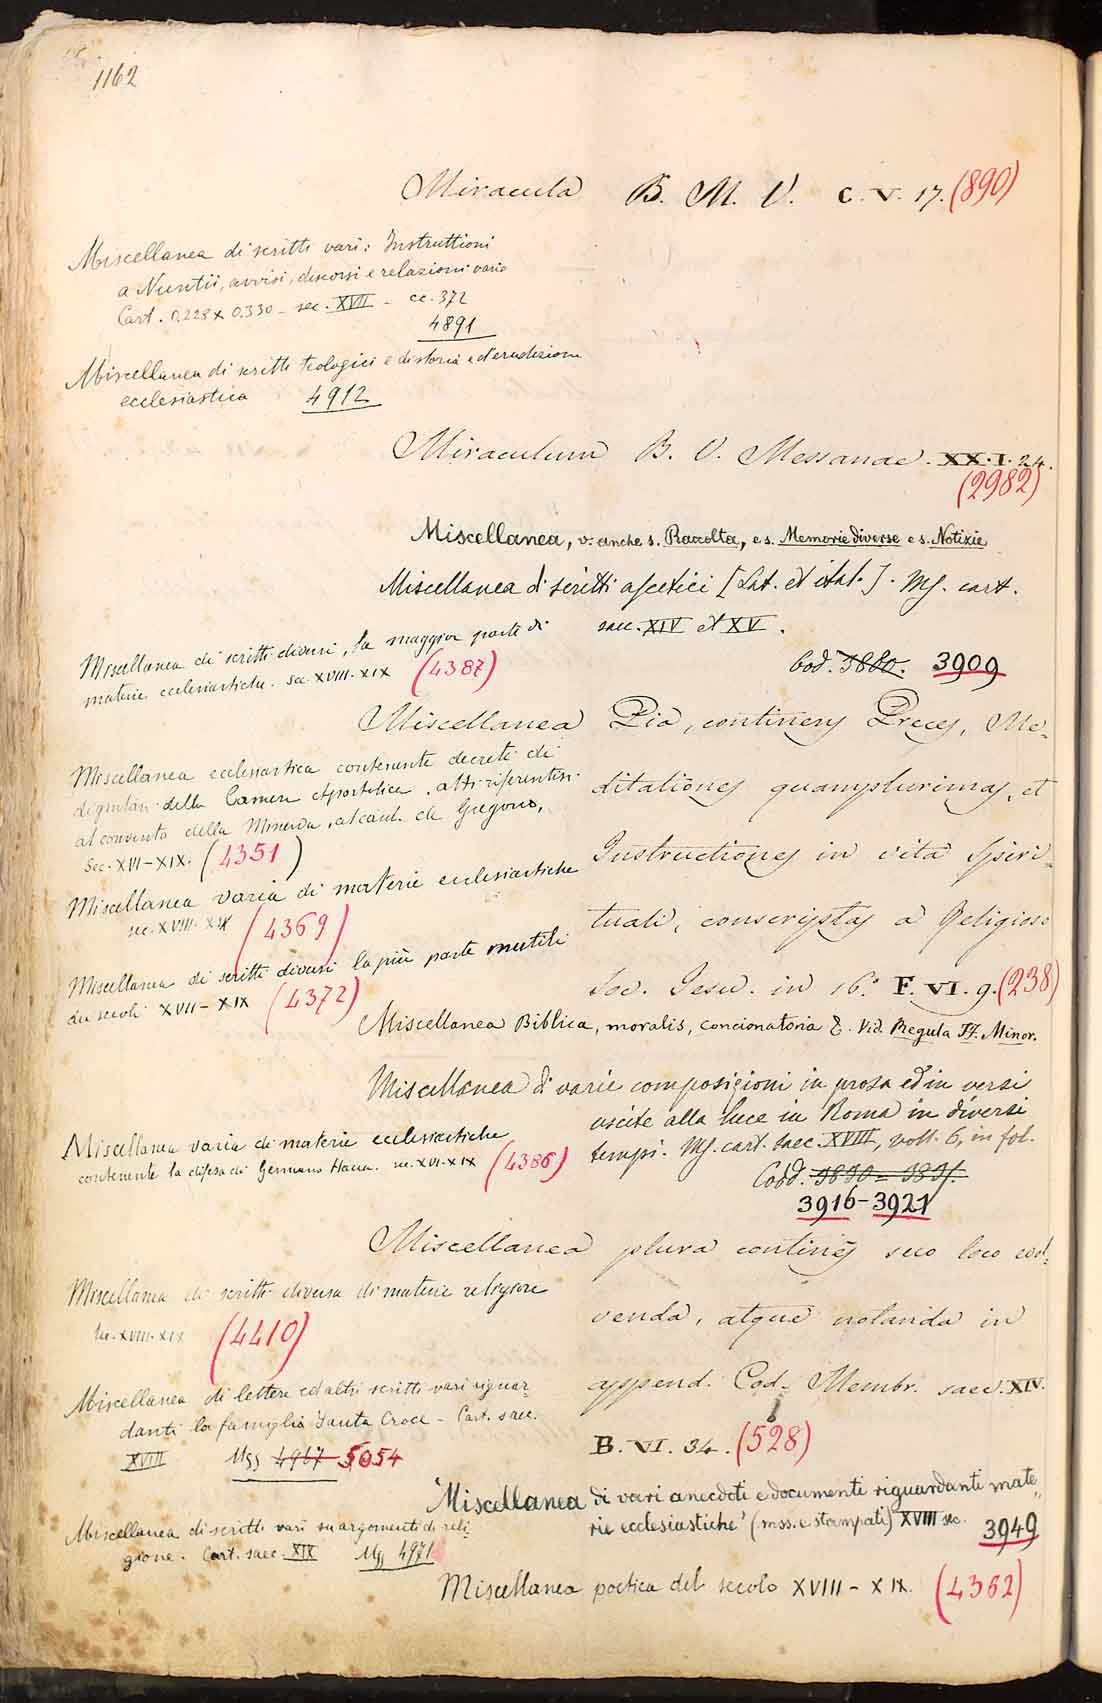 1162
Miracula B. M. V. C. V. 17. (890)
Miscellanea di scritti vari: Instruttioni
a Nuntii, avvisi, discorsi e relazioni varie
Cart. 0.228 x 0.330 - sec. XVII - cc. 372
4891
Miscellanea di scritti teologici e di storia e d'erudizione
ecclesiastica 4912
Miraculum B. V. Messanae. XX. I. 24.
(2982)
Miscellanea, v. anche s. Raccolta, e s. Memorie diverse e s. Notizie
Miscellanea di scritti ascetici [Lat. et ital.]. Ms. cart.
saec. XIV et XV.
Cod. 3880. 3909
Miscellanea di scritti diversi, la maggior parte di
materie ecclesiastiche. sec. XVIII-XIX (4387)
Miscellanea Pia, continens Preces, Me-
ditationes quamplurimas, et
Instructiones in vita Spiri-
tuali, conscriptas a Religioso
Soc. Jesu. in 16.° F. VI. 9. (238)
Miscellanea ecclesiastica contenente decreti di
dignitari della Camera Apostolica, atti riferentesi
al convento della Minerva, al card. de Gregorio,
Sec. XVII-XIX. (4351)
Miscellanea varia di materie ecclesiastiche
sec. XVIII-XIX (4369)
Miscellanea di scritti diversi la più parte mutili
dei secoli XVII-XIX (4372)
Miscellanea Biblica, moralis, concionatoria &. Vid. Regula FF. Minor.
Miscellanea di varie composizioni in prosa ed in versi
uscite alla luce in Roma in diversi
tempi. Ms. cart. saec. XVIII, voll. 6, in fol.
Codd.
3916-3921
Miscellanea varia di materie ecclesiastiche
contenente la difesa di Germano sec. XVI-XIX (4386)
Miscellanea plura continens suo loco
venda, atque notanda in
append. Cod. Membr. saec. XIV.
B. VI. 34. (528)
Miscellanea di scritti diversa di materie religiose
sec. XVIII-XIX (4410)
Miscellanea di lettere ed altri scritti vari riguar-
danti la famiglia Santa Croce - Cart. saec.
XVIII Mss 4967 5054
Miscellanea di vari anecdoti e documenti riguardanti mate-
rie ecclesiastiche (mss. e stampati) XVIII sec. 3949
Miscellanea di scritti vari su argomenti di reli-
gione. Cart. saec. XIX Mss 4971
Miscellanea poetica del secolo XVIII-XIX. (4362)